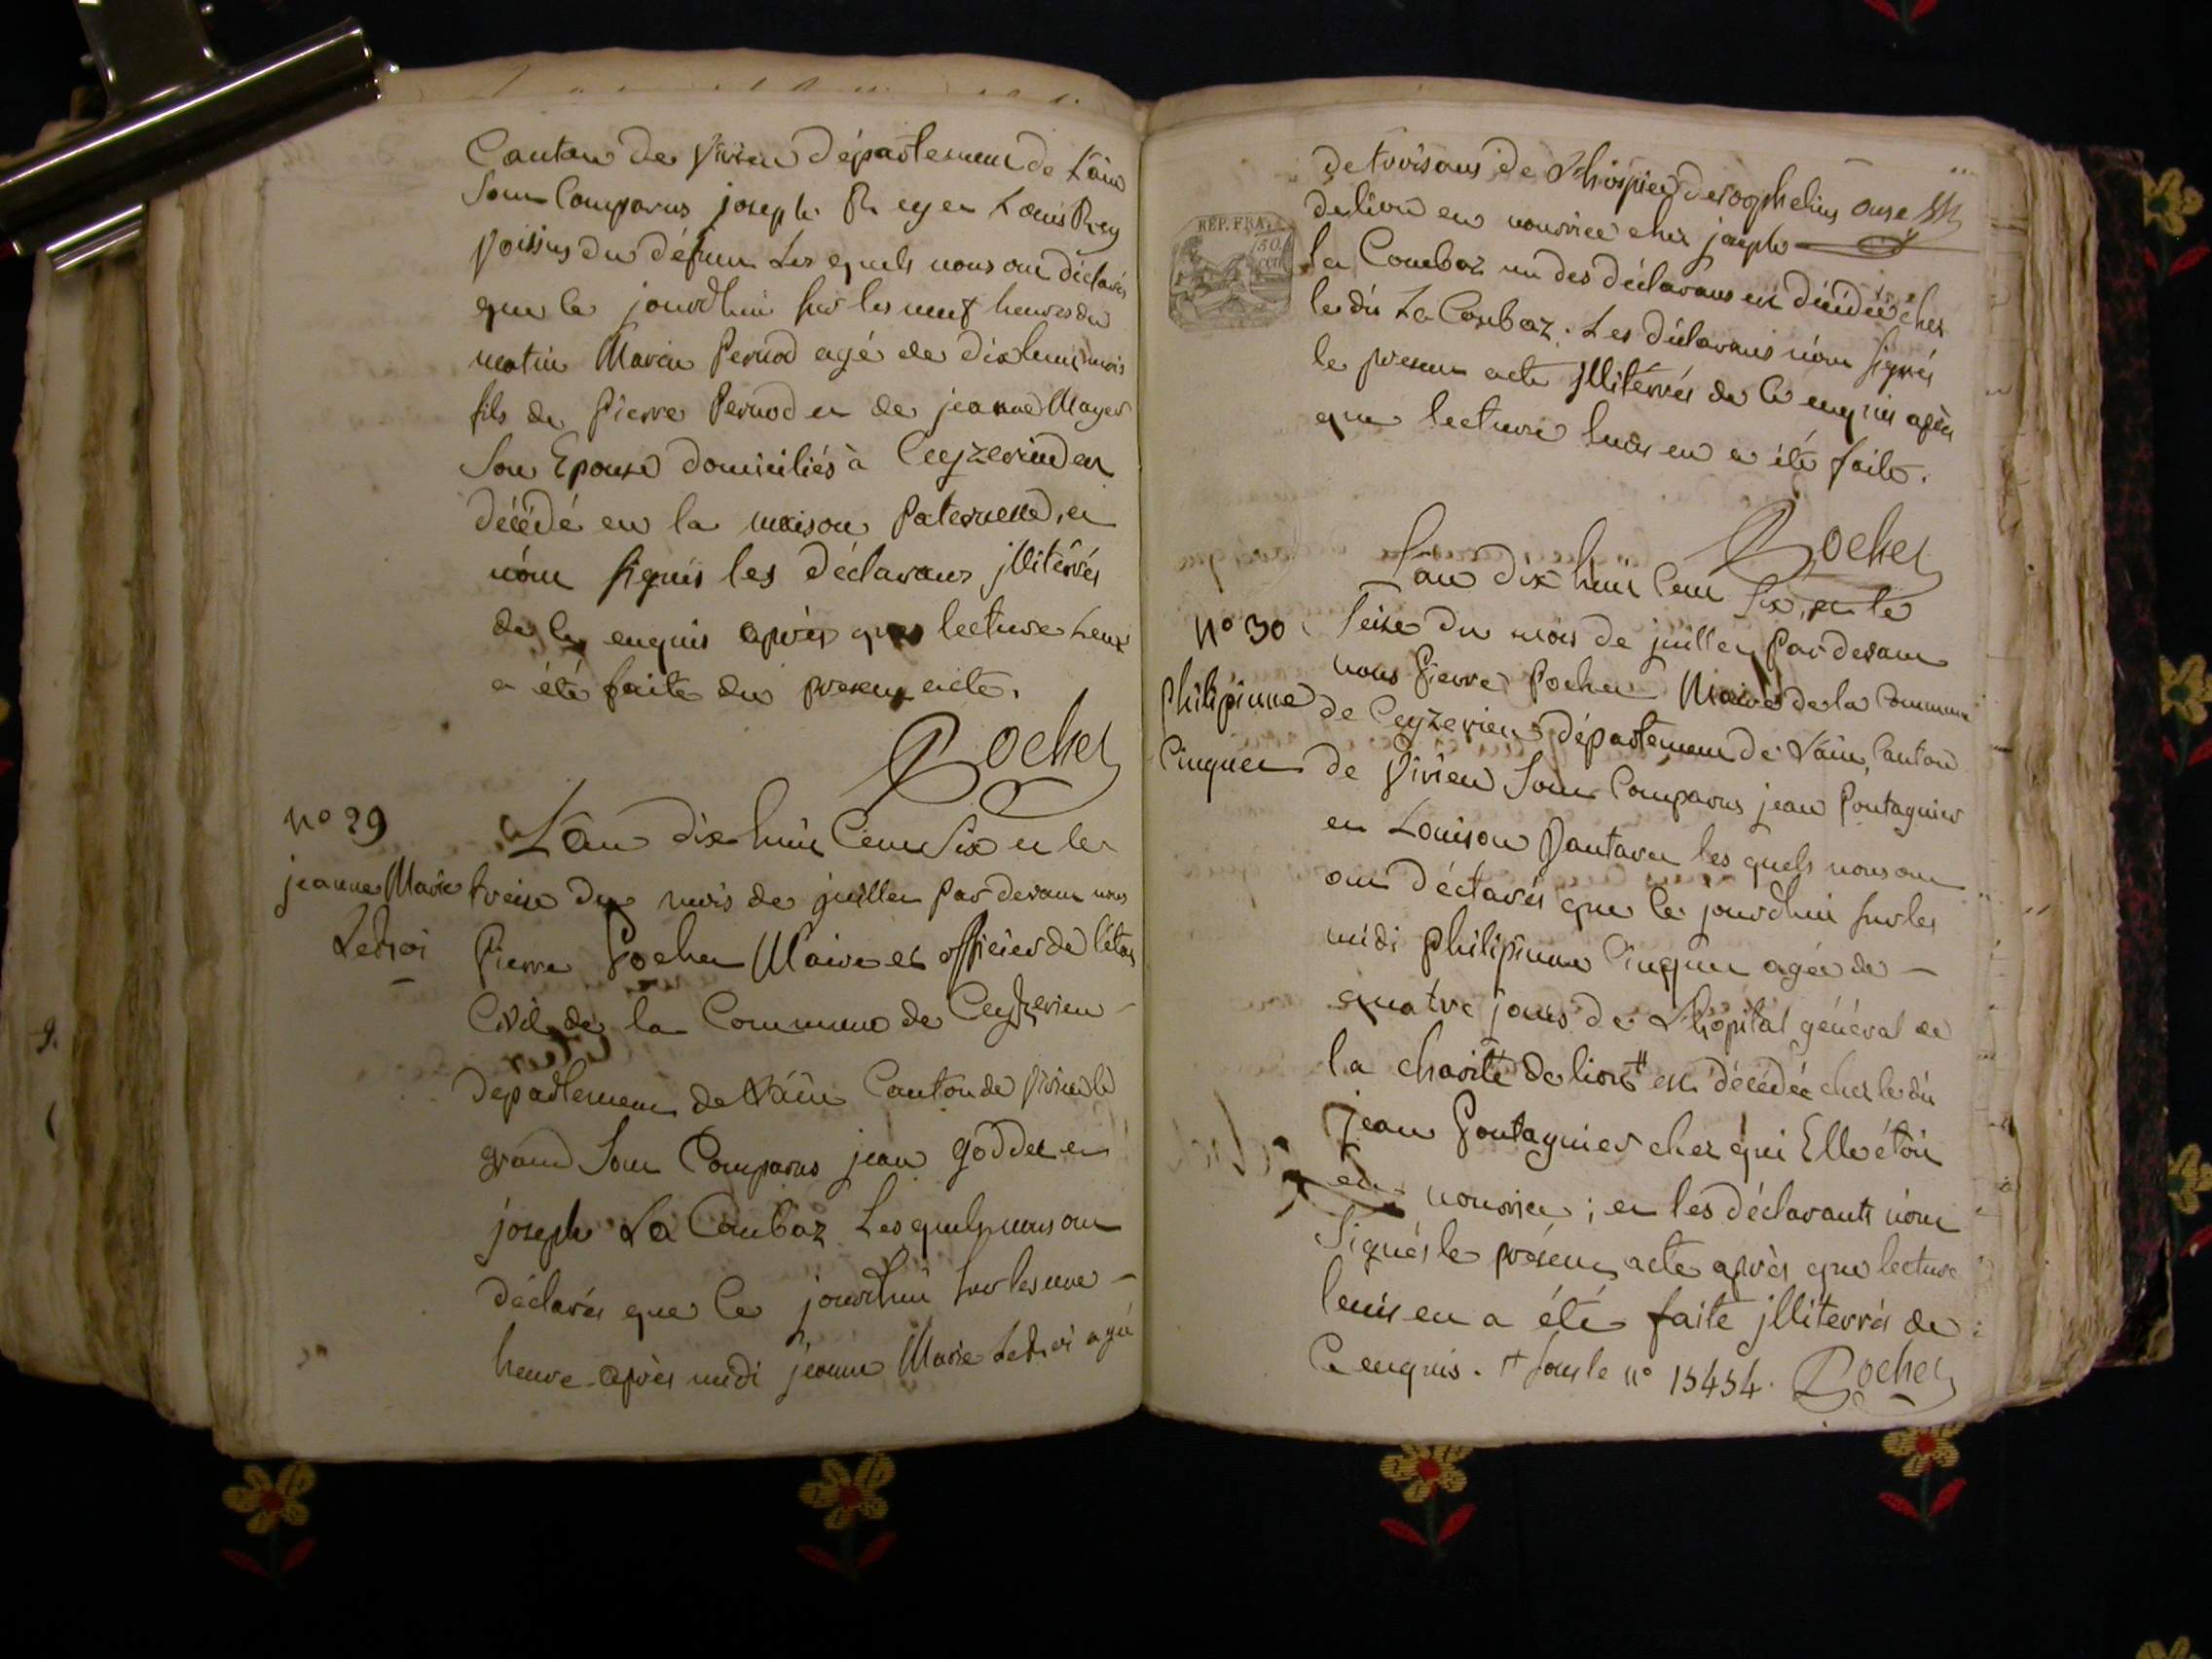 Canton de Virieu département de Lain
Sont Comparus joseph Rey et Louis Rey
Voisins du défunt Les quels nous ont déclarés
que ce jourdhui sur les neuf heures du
matin Marin Pernod agé de dixhuit mois
fils de Pierre Pernod et de jeanne Mayer
Son Epouse domiciliés à Ceyzerieu est
décédé en la maison Paternelle, et
nónt signés les déclarants jllitérés
de ce enquis après que lecture Leur
a été faite du present acte.
Pochet
N° 29
jeanne Marie
Ledroi
L'an dix huit Cent Six et le
treize du mois de juillet par devant nous
Pierre Pochet Maire et officier de l'état
Civil de la Commune de Ceyzerieu
departement de Lain Canton de Virieu le
grand Sont Comparus jean goddet et
joseph La Combaz Les quels nous ont
déclarés que ce jourdhui sur les une
heure après midi jeanne Marie Ledroi agée
de trois ans de Lhospice des orphelins
delivré en nourrice chez joseph
REP. FRA.
50.
cen.
la Combaz un des déclarans est décédée chez
le dit La Combaz. Les déclarans nónt signés
le present acte jllitérrés de ce enquis après
que lecture leurs en a été faite.
Pochet
Lan dix huit Cent Six, et le
N° 30
Seize du mois de juillet Par devant
nous Pierre Pochet Maire de la Commune
philipinne
de Ceyzerieu département de Lain, Canton
Cinquet
de Virieu Sont Comparus jean Pontagnier
et Louison Vantaret les quels nous ont
ont déclarés que ce jourdhui sur les
midi philipinne Cinquet agée de
quatre jours de Lhôpital général de
la charité de lion # est décédée chez le dit
jean Pontagnier chez qui Elle étoit
en nourrice ; et les déclarants nónt
Signés le présent acte après que lecture
leurs en a été faite jlliterrés de
Ce enquis. # sous le n° 15454. Pochet